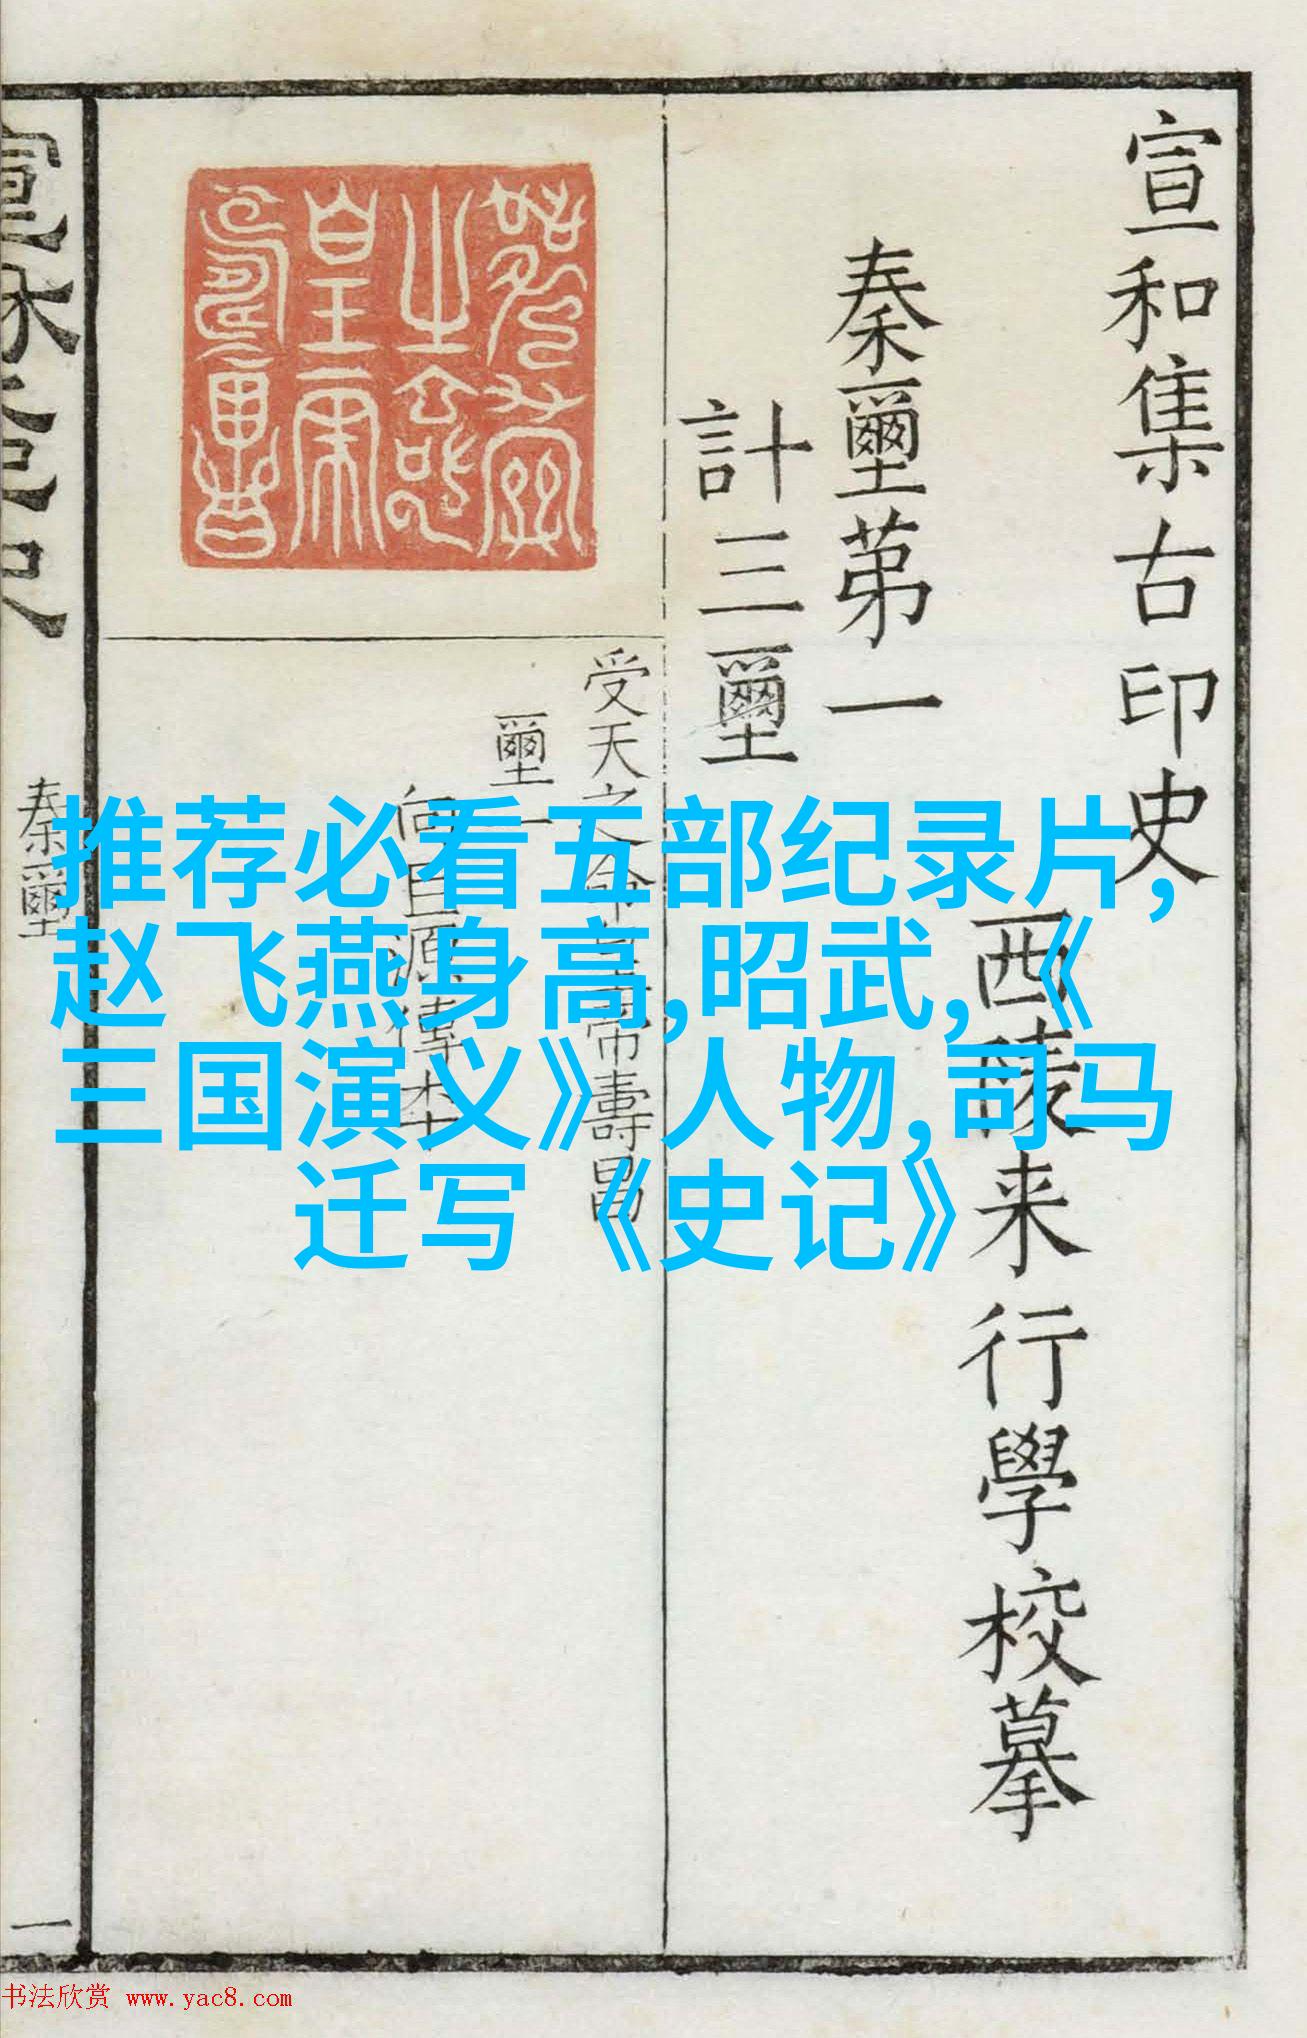 宣和集古印史
西陵来行學校摹
秦璽第一
計三璽
受天之命皇帝壽昌
璽一
向巨源傳本
秦璽
一
推荐必看五部纪录片,
赵飞燕身高,昭武,《
三国演义》人物,司马
迁写《史记》
书法欣赏 www.yac8.com